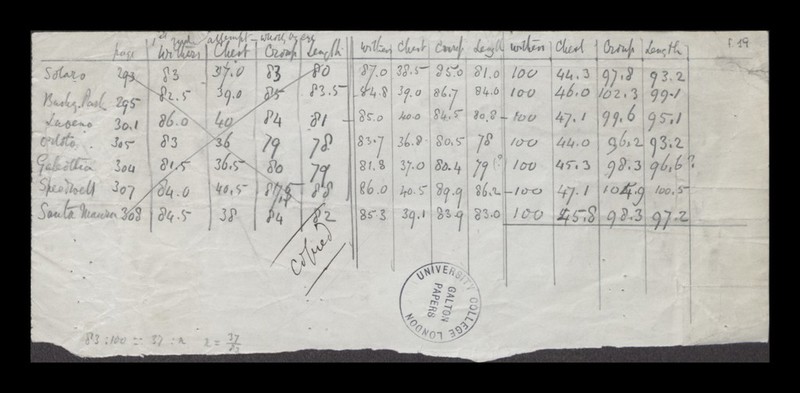 f 19
attempt — whole
page withers Chest Croup Length withers Chest Croup Length withers Chest Croup Length
Solaro 293 83 37.0 83 80 87.0 38.5 85.0 81.0 100 44.3 97.8 93.2
Bushy Park 295 82.5 39.0 85 83.5 84.8 39.0 86.7 84.0 100 46.0 102.3 99.1
Luveno 301 86.0 40 84 81 – 85.0 40.0 84.5 80.8 – 100 47.1 99.6 95.1
305 83 36 79 78 83.7 36.8 80.5 78 100 44.0 96.2 93.2
304 81.5 36.5 80 79 81.8 37.0 80.4 79 (?) 100 45.3 98.3 96.6?
Speedwell 307 84.0 40.5 88 86.0 40.5 89.9 86.2 – 100 47.1 104.9 100.5
Santa Maura 308 84.5 38 84 82 85.3 39.1 83.9 83.0 100 45.8 98.3 97.2
copied
UNIVERSITY COLLEGE LONDON
GALTON
PAPERS
83 : 100 :: 37 : x x = 37/83